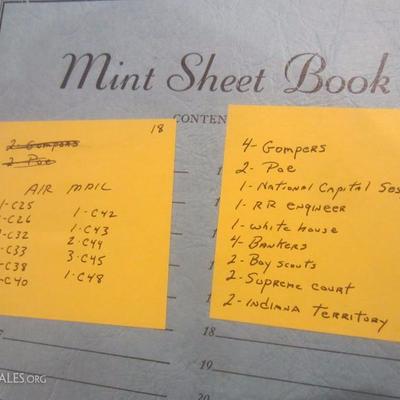 Mint Sheet Book
CONTEN
18
2- Gompers
2 Poe
AIR MAIL
1-C25
-C26
-C32
-C33
-C38
-C40
1-C42
1-C43
2-C44
3-C45
1-C48
4- Gompers
2- Poe
1- National Capital Ses
1- RR engineer
1- White house
4- Bankers
2- Boy scouts
2- Supreme court
2- Indiana Territory
18
19
20
ALES.ORG